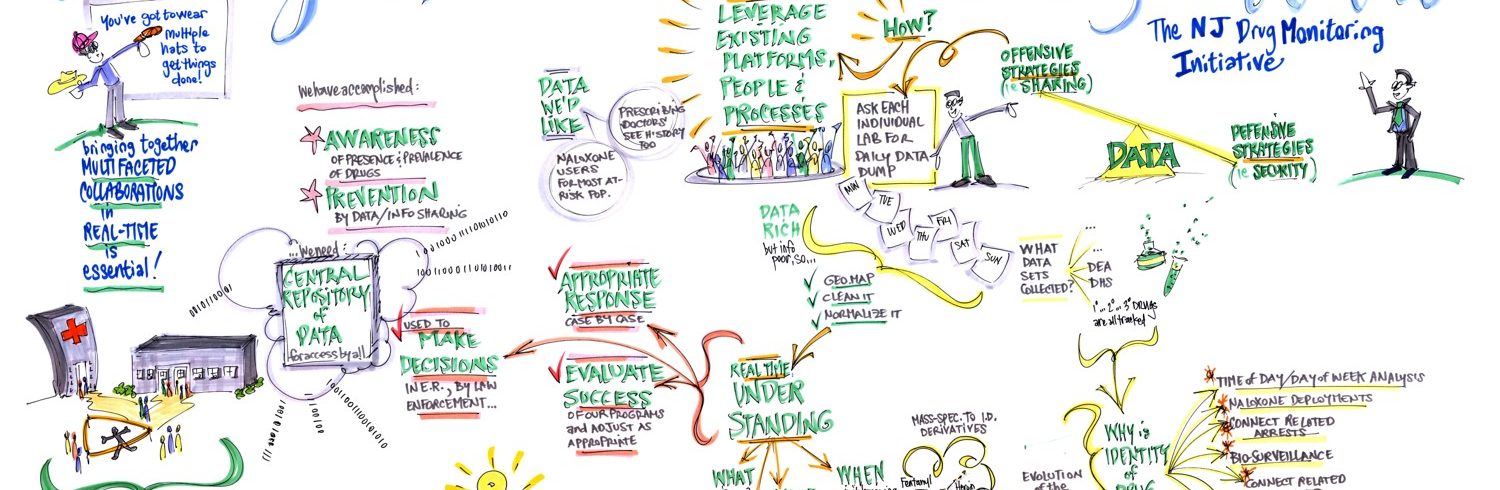 You've got to wear
multiple
hats to
get things
done!
bringing together
MULTIFACETED
COLLABORATIONS
in
REAL-TIME
is
essential!
We have accomplished:
AWARENESS
OF PRESENCE & PREVALENCE
OF DRUGS
PREVENTION
BY DATA/INFO SHARING
...We need:
CENTRAL
REPOSITORY
of
DATA
for access by all
USED TO
MAKE
DECISIONS
IN E.R., BY LAW
ENFORCEMENT...
DATA
WE'D
LIKE
PRESCRIBING
DOCTORS'
SEE HISTORY
TOO
NALOXONE
USERS
FOR MOST AT-
RISK POP.
LEVERAGE
EXISTING
PLATFORMS,
PEOPLE &
PROCESSES
HOW?
ASK EACH
INDIVIDUAL
LAB FOR
DAILY DATA
DUMP
MON
TUE
WED
THU
FRI
SAT
SUN
OFFENSIVE
STRATEGIES
(ie SHARING)
DATA
DEFENSIVE
STRATEGIES
(ie SECURITY)
The NJ Drug Monitoring
Initiative
DATA
RICH
but info
poor, so...
GEO.MAP
CLEAN IT
NORMALIZE IT
WHAT
DATA
SETS
COLLECTED?
...
DEA
DHS
...
1° ... 2° ... 3° DRUGS
are all tracked
APPROPRIATE
RESPONSE
CASE BY CASE
EVALUATE
SUCCESS
OF OUR PROGRAMS
and ADJUST AS
APPROPRIATE
REAL TIME
UNDER
STANDING
WHAT
WHEN
MASS-SPEC. TO I.D.
DERIVATIVES
Fentanyl
Heroin
EVOLUTION
of the
WHY is
IDENTITY
of
DRUG
TIME of DAY/DAY of WEEK ANALYSIS
NALOXONE DEPLOYMENTS
CONNECT RELATED
ARRESTS
BIO-SURVEILLANCE
CONNECT RELATED